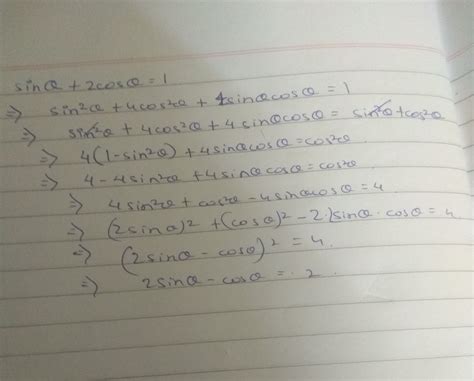 sinθ + 2cosθ = 1
⇒ sin²θ + 4cos²θ + 4sinθcosθ = 1
⇒ sin²θ + 4cos²θ + 4 sinθcosθ = sin²θ + cos²θ
⇒ 4(1-sin²θ) + 4sinθcosθ = cos²θ
⇒ 4 - 4sin²θ + 4sinθ cosθ = cos²θ
⇒ 4sin²θ + cos²θ - 4sinθcosθ = 4
⇒ (2sinθ)² + (cosθ)² - 2.2sinθ.cosθ = 4
⇒ (2sinθ - cosθ)² = 4
⇒ 2sinθ - cosθ = 2